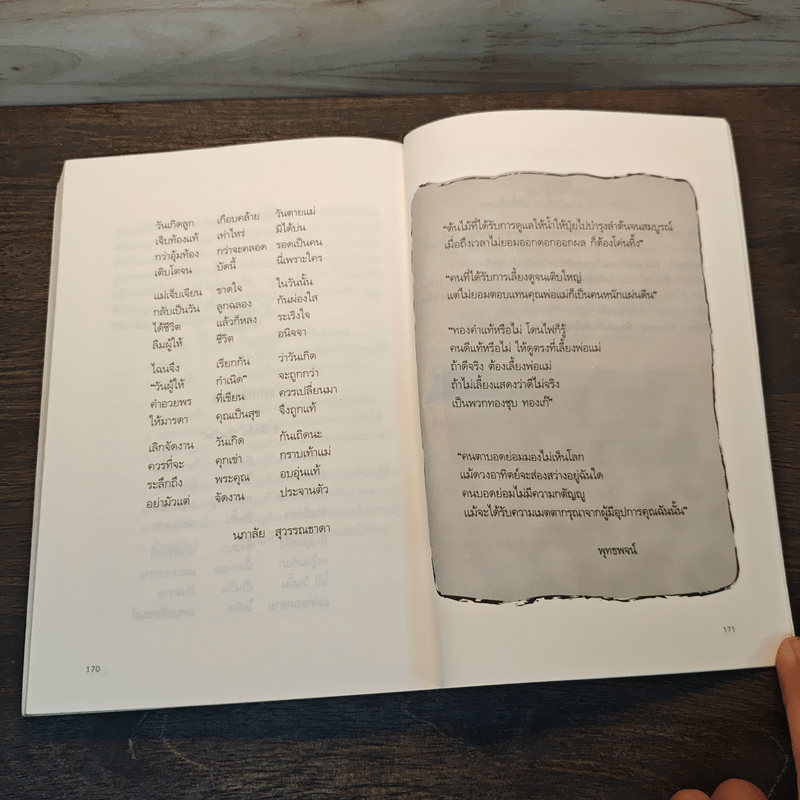 วันเกิดลูก เกือบคล้าย วันตายแม่
เจ็บท้องแท้ เท่าไหร่ มิได้บ่น
กว่าอุ้มท้อง กว่าจะคลอด รอดเป็นคน
เติบโตจน บัดนี้ นี่เพราะใคร
แม่เจ็บเจียน ขาดใจ ในวันนั้น
กลับเป็นวัน ลูกฉลอง กันผ่องใส
ได้ชีวิต แล้วก็หลง ระเริงใจ
ลืมผู้ให้ ชีวิต อนิจจา
ไฉนจึง เรียกกัน ว่าวันเกิด
"วันผู้ให้ กำเนิด" จะถูกกว่า
คำอวยพร ที่เขียน ควรเปลี่ยนมา
ให้มารดา คุณเป็นสุข จึงถูกแท้
เลิกจัดงาน วันเกิด กันเถิดนะ
ควรที่จะ คุกเข่า กราบเท้าแม่
ระลึกถึง พระคุณ อบอุ่นแท้
อย่ามัวแต่ จัดงาน ประจานตัว
นภาลัย สุวรรณธาดา
170
"ต้นไม้ที่ได้รับการดูแลให้น้ำให้ปุ๋ยไปบำรุงลำต้นจนสมบูรณ์
เมื่อถึงเวลาไม่ยอมออกดอกออกผล ก็ต้องโค่นทิ้ง"
"คนที่ได้รับการเลี้ยงดูจนเติบใหญ่
แต่ไม่ยอมตอบแทนคุณพ่อแม่ก็เป็นคนหนักแผ่นดิน"
"ทองคำแท้หรือไม่ โดนไฟก็รู้
คนดีแท้หรือไม่ ให้ดูตรงที่เลี้ยงพ่อแม่
ถ้าดีจริง ต้องเลี้ยงพ่อแม่
ถ้าไม่เลี้ยงแสดงว่าดีไม่จริง
เป็นพวกทองชุบ ทองเก๊"
"คนตาบอดย่อมมองไม่เห็นโลก
แม้ดวงอาทิตย์จะส่องสว่างอยู่ฉันใด
คนบอดย่อมไม่มีความกตัญญู
แม้จะได้รับความเมตตากรุณาจากผู้มีอุปการคุณฉันนั้น"
พุทธพจน์
171